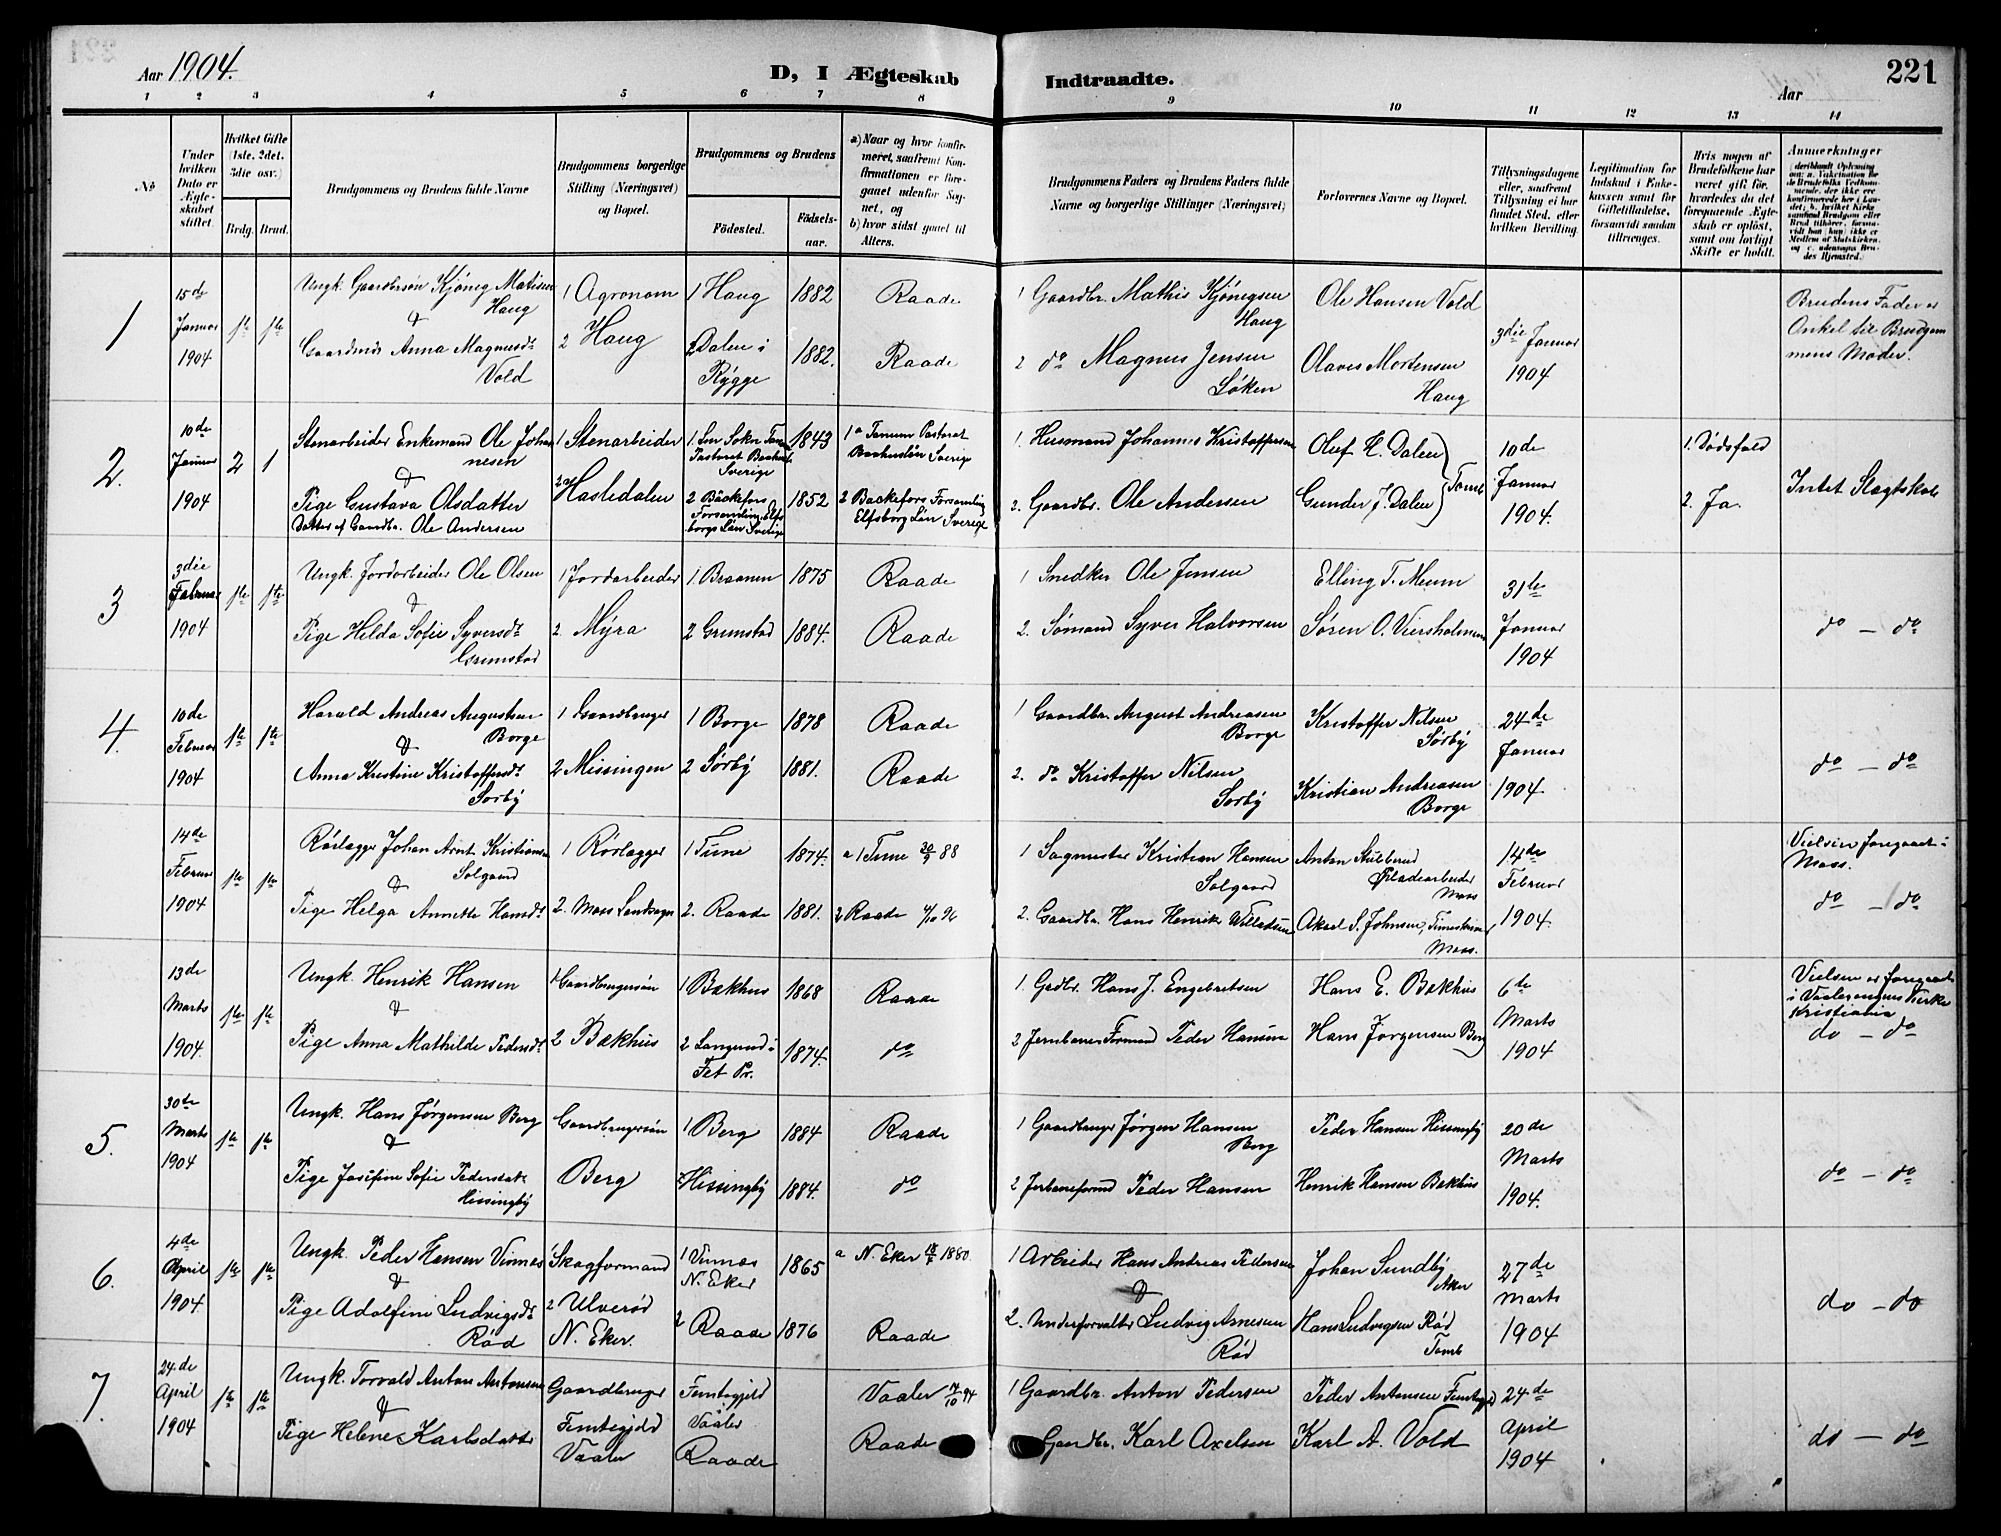 Aar 1904.
D, I Ægteskab
Indtraadte.
Aar
221
1 2 3 4 5 6 7 8
9 10 11 12 13 14
No
Under hvilken Dato er Ægteskabet stiftet.
Hvilket Gifte (1ste, 2det, 3die osv.)
Brdg. Brud.
Brudgommens og Brudens fulde Navne
Brudgommens borgerlige Stilling (Næringsvei) og Bopæl.
Brudgommens og Brudens
Fødested.
Fødselsaar.
a) Naar og hvor konfirmeret, saafremt Konfirmationen er foregaaet udenfor Sognet, og
b) hvor sidst gaaet til Alters.
Brudgommens Faders og Brudens Faders fulde Navne og borgerlige Stillinger (Næringsvei)
Forlovernes Navne og Bopæl.
Tillysningsdagene eller, saafremt Tillysning ei har fundet Sted, efter hvilken Bevilling.
Legitimation for Indskud i Enkekassen samt for Giftetilladelse, forsaavidt saadan tiltrænges.
Hvis nogen af Brudefolkene har været gift før, hvorledes da det foregaaende Ægteskab er opløst, samt om lovligt Skifte er holdt.
Anmerkninger
1
15de Januar 1904
1ste 1ste
Ungk. Gaardbrsøn Kjønig Matisen Haug
&
Gaardmds Anna Magnusdt. Vold
1 Agronom
2 Haug
1 Haug 1882
2 Dalen i Rygge 1882.
Raade
Raade
1 Gaardbr. Mathis Kjønigsen Haug
2 do Magnus Jensen Løken
Ole Hansen Vold
Olaves Mortensen Haug
3die Januar 1904
Brudens Fader er Onkel til Brudgommens Moder.
2.
10de Januar 1904
2 1
Stenarbeider Enkemand Ole Johannesen
&
Pige Gustava Olsdatter
Datter af Gaardbr. Ole Andersen
1 Stenarbeider
2 Hasledalen
1843
2 Bäckefors Forsamling Elfsborgs Län Sverige 1852
1 a Tanum Pastorat Baahuslän Sverige
2 Backefors Forsamling Elfsborg Län Sverige
1. Husmand Johannes Kristoffersen
2. Gaardbr. Ole Andersen
Oluf H. Dalen
Gunder J. Dalen
Tomb
10de Januar 1904.
1. Dødsfald
2. Ja.
Intet Slagtskab
3
3die Februar 1904
1ste 1ste
Ungk. Jordarbeider Ole Olsen
&
Pige Hilda Sofie Syversdt. Grimstad
1 Jordarbeider
2. Myra
1. Braanen 1875
2 Grimstad 1884.
Raade
Raade
1 Snedker Ole Jensen
2. Sømand Syver Halvorsen
Elling T. Meum
Søren O. Viersholmen
31te Januar 1904
do — do
4.
10de Februar 1904
1ste 1ste
Harald Andreas Augustsen Borge
&
Anna Kristine Kristoffersdt. Sørby
1 Gaardbruger
2 Missingen
1 Borge 1878
2 Sørby 1881.
Raade
Raade
1 Gaardbr. August Andreasen Borge
2. do Kristoffer Nilsen Sørby
Kristoffer Nilsen Sørby
Kristian Andreasen Borge
24de Januar 1904
do — do
14de Februar 1904
1ste 1ste
Rørlægger Johan Arnt Kristiansen Solgaard
&
Pige Helga Annette Hansdt.
1 Rørlægger
2. Moss Landsogn
1 Tune 1874.
2. Raade 1881.
a 1 Tune 30/9 88
2 Raade 4/10 96
1 Sagmester Kristian Hansen Solgaard
2. Gaardbr. Hans Henrik Willadsen
Anton Stubberud Pladearbeider Moss
Aksel S. Johnsen, Moss.
14de Februar 1904.
Vielsen foregaaet i Moss.
do — do
13de Marts 1904.
1ste 1ste
Ungk. Henrik Hansen
&
Pige Anna Mathilde Pedersdt.
1 Gaardbrugersøn
2 Bækhus
1 Bækhus 1868
2 Langrund i Fet Pr. 1874.
Raade
do
1. Grdbr. Hans J. Engebretsen
2 Jernbane Formand Peder Hansen
Hans E. Bækhus
Hans Jørgensen Berg
6te Marts 1904
Vielsen er foregaaet i Vaalerengens Kirke Kristiania
do — do
5.
30te Marts 1904
1ste 1ste
Ungk. Hans Jørgensen Berg
&
Pige Josefine Sofie Pedersdatr. Hissingby
Gaardbrugersøn
Berg
1 Berg 1884
2 Hissingby 1884.
Raade
do
1 Gaardbruger Jørgen Hansen Berg
2 Jerbaneformd Peder Hansen
Peder Hansen Hissingby
Henrik Hansen Bækhus
20de Marts 1904.
do — do
6.
4de April 1904
1ste 1ste
Ungk. Peder Hansen Vinnes
&
Pige Adolfine Ludvigsdt. Rød
1 Skogformand
2 Ulverød N. Eker.
1 Vinnes N. Eker 1865
2 Raade 1876
a N. Eker 18/7 1880.
Raade
1 Arbeider Hans Andreas Pedersen
&
2. Underforvalter Ludvig Arnesen Rød
Johan Sundby Aker
Hans Ludvigsen Rød Tomb
27de Marts 1904
do — do
7.
24.de April 1904
1ste 1ste
Ungk. Torvald Anton Antonsen
&
Pige Helene Karlsdatter
Gaardbruger
Femtegjeld Vaaler
Femtegjeld i Vaaler
Raade
Vaaler 14/10 94
Raade
1 Gaardbr. Anton Pedersen
Gaardbr. Karl Axelsen
Peder Antonsen Femtegjeld
Karl A. Vold
24de April 1904
do — do